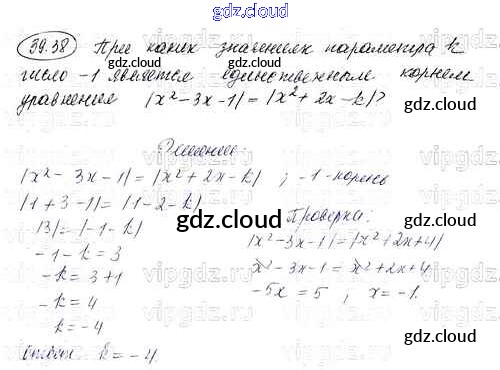 gdz.cloud
39.38 При каких значениях параметра k
число -1 является единственным корнем
уравнения |x² - 3x - 1| = |x² + 2x - k|?
Решение:
|x² - 3x - 1| = |x² + 2x - k| ; -1 - корень
|1 + 3 - 1| = |1 - 2 - k|
|3| = |-1 - k|
-1 - k = 3
-k = 3 + 1
-k = 4
k = -4
Проверка:
|x² - 3x - 1| = |x² + 2x + 4|
x² - 3x - 1 = x² + 2x + 4
-5x = 5 ; x = -1.
Ответ: k = -4.
gdz.cloud
gdz.cloud
gdz.cloud
gdz.cloud
gdz.cloud
gdz.cloud
gdz.cloud